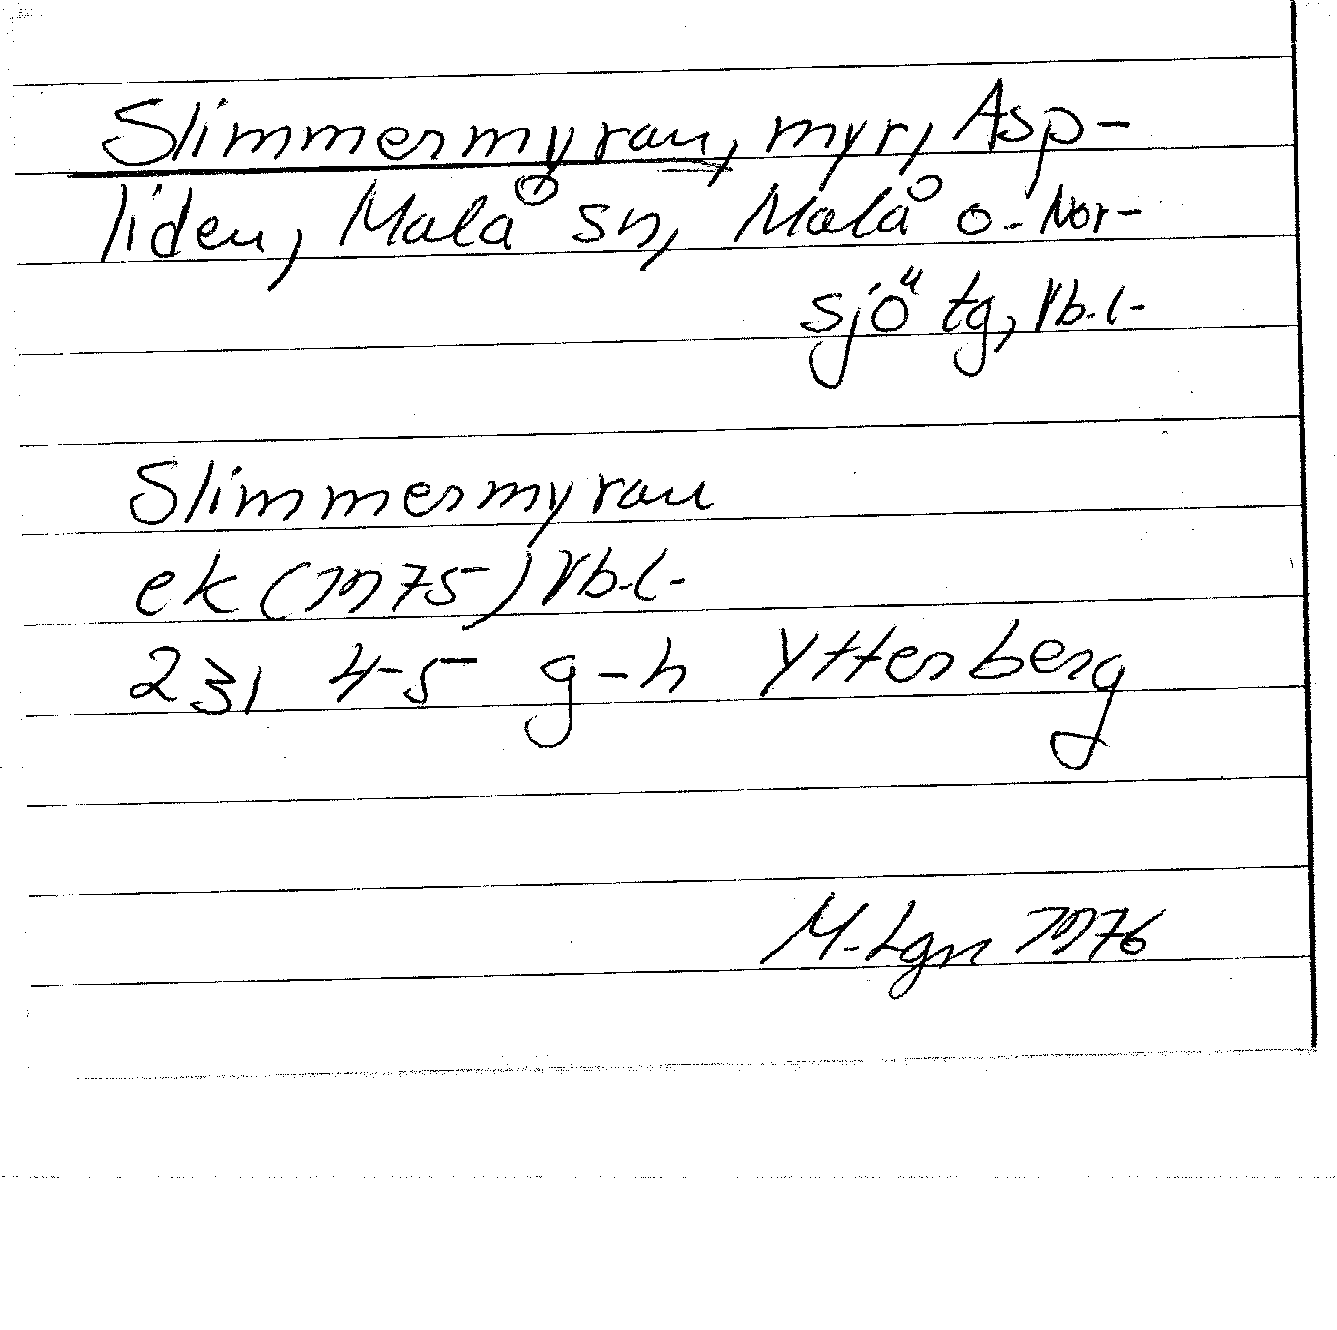 Slimmermyran, myr, Asp-
liden, Malå sn, Malå o. Nor-
sjö tg, Vb.l.
Slimmermyran
ek (1975) Vb.l.
231 4-5 g-h Ytterberg
M. Lgn 1976